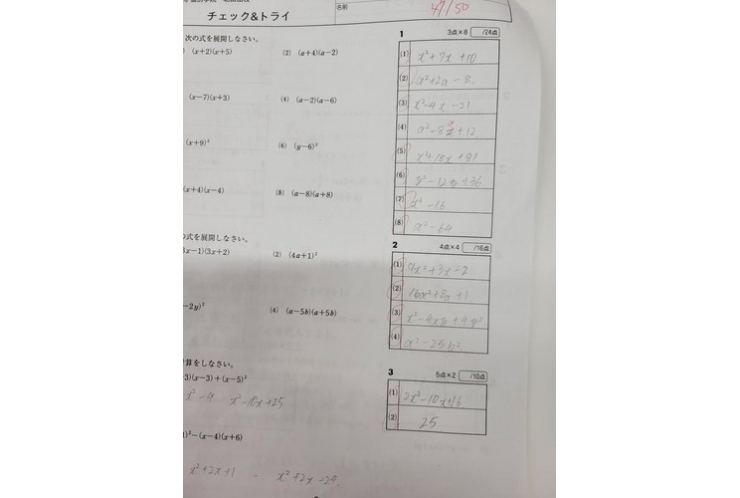 チェック&トライ
名前
47/50
次の式を展開しなさい。
(x+2)(x+5)
(2) (a+4)(a−2)
(x−7)(x+3)
(4) (a−2)(a−6)
(x+9)²
(6) (y−6)²
(x+4)(x−4)
(8) (a−8)(a+8)
の式を展開しなさい。
3x−1)(3x+2)
(2) (4a+1)²
−2y)²
(4) (a−5b)(a+5b)
算をしなさい。
3)(x−3)+(x−5)²
x²−9 x²−10x+25
)²−(x−4)(x+6)
x²+2x+1 − x²+2x−24
1 3点×8 /24点
(1) x²+7x+10
(2) a²+2a−8
(3) x²−4x−21
(4) a²−8a+12
(5) x²+18x+81
(6) y²−12y+36
(7) x²−16
(8) a²−64
2 4点×4 /16点
(1) 9x²+3x−2
(2) 16a²+8a+1
(3) x²−4xy+4y²
(4) a²−25b²
3 5点×2 /10点
(1) 2x²−10x+16
(2) 25